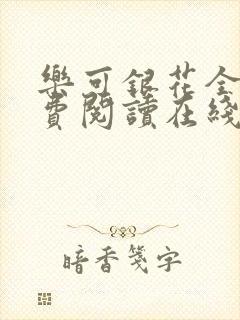 樂可銀花全
費閱讀在綫
暗香箋字